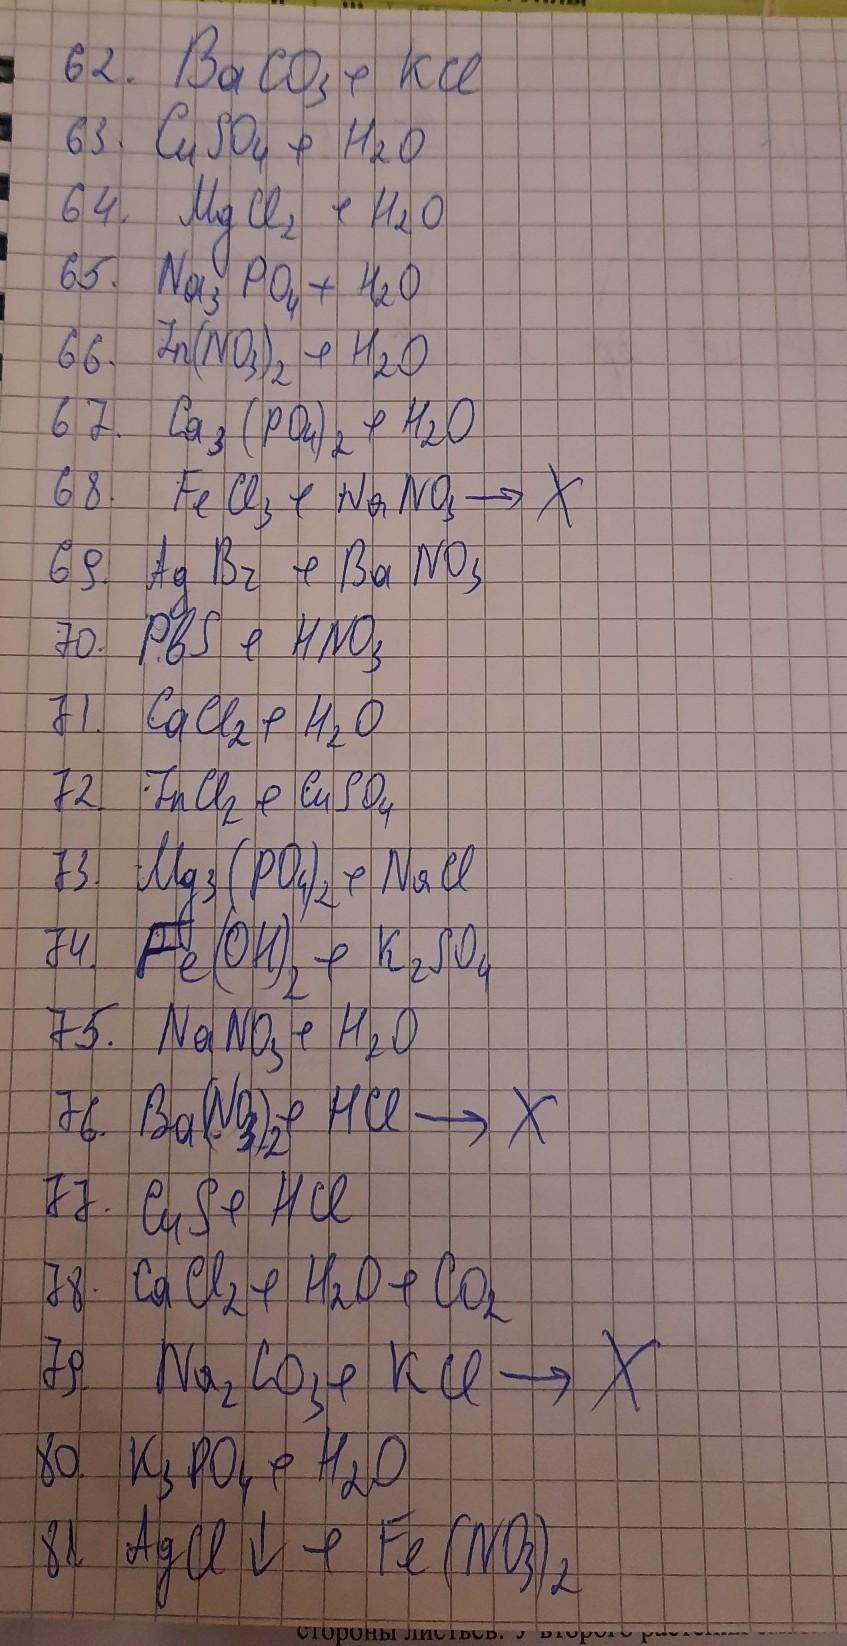 62. BaCO3 + KCl
63. CuSO4 + H2O
64. MgCl2 + H2O
65. Na3PO4 + H2O
66. Zn(NO3)2 + H2O
67. Ca3(PO4)2 + H2O
68. FeCl3 + NaNO3 → X
69. AgBr + BaNO3
70. PbS + HNO3
71. CaCl2 + H2O
72. ZnCl2 + CuSO4
73. Mg3(PO4)2 + NaCl
74. Fe(OH)2 + K2SO4
75. NaNO3 + H2O
76. Ba(NO3)2 + HCl → X
77. CuS + HCl
78. CaCl2 + H2O + CO2
79. Na2CO3 + KCl → X
80. K3PO4 + H2O
81. AgCl ↓ + Fe(NO3)2
стороны листьев. У второго